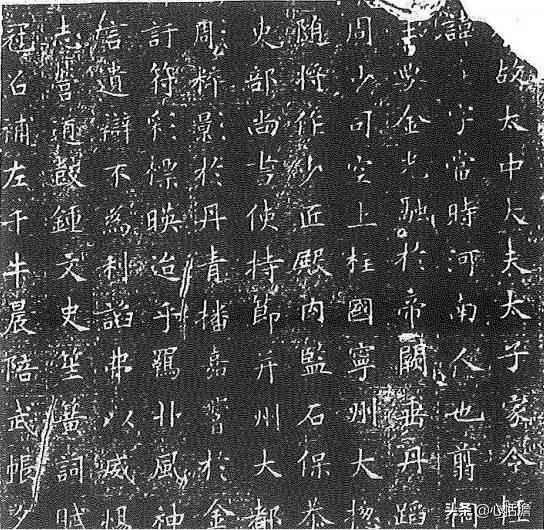 故太中大夫太子家令輕
諱字當時河南人也翦桐
金光融於帝闕垂丹蹈
周少司空上柱國寧州大揔
随將作少匠殿內監石保恭
吏部尚書使持節并州大都
周粹影於丹青播嘉譽於金
訏符彩慓映迨乎羈丱風神
信遺辯不為利諂弗以威惕
志營道鼓鍾文史笙簧詞賦
冠召補左千牛晨陪武帳夕
头条@心悟澹